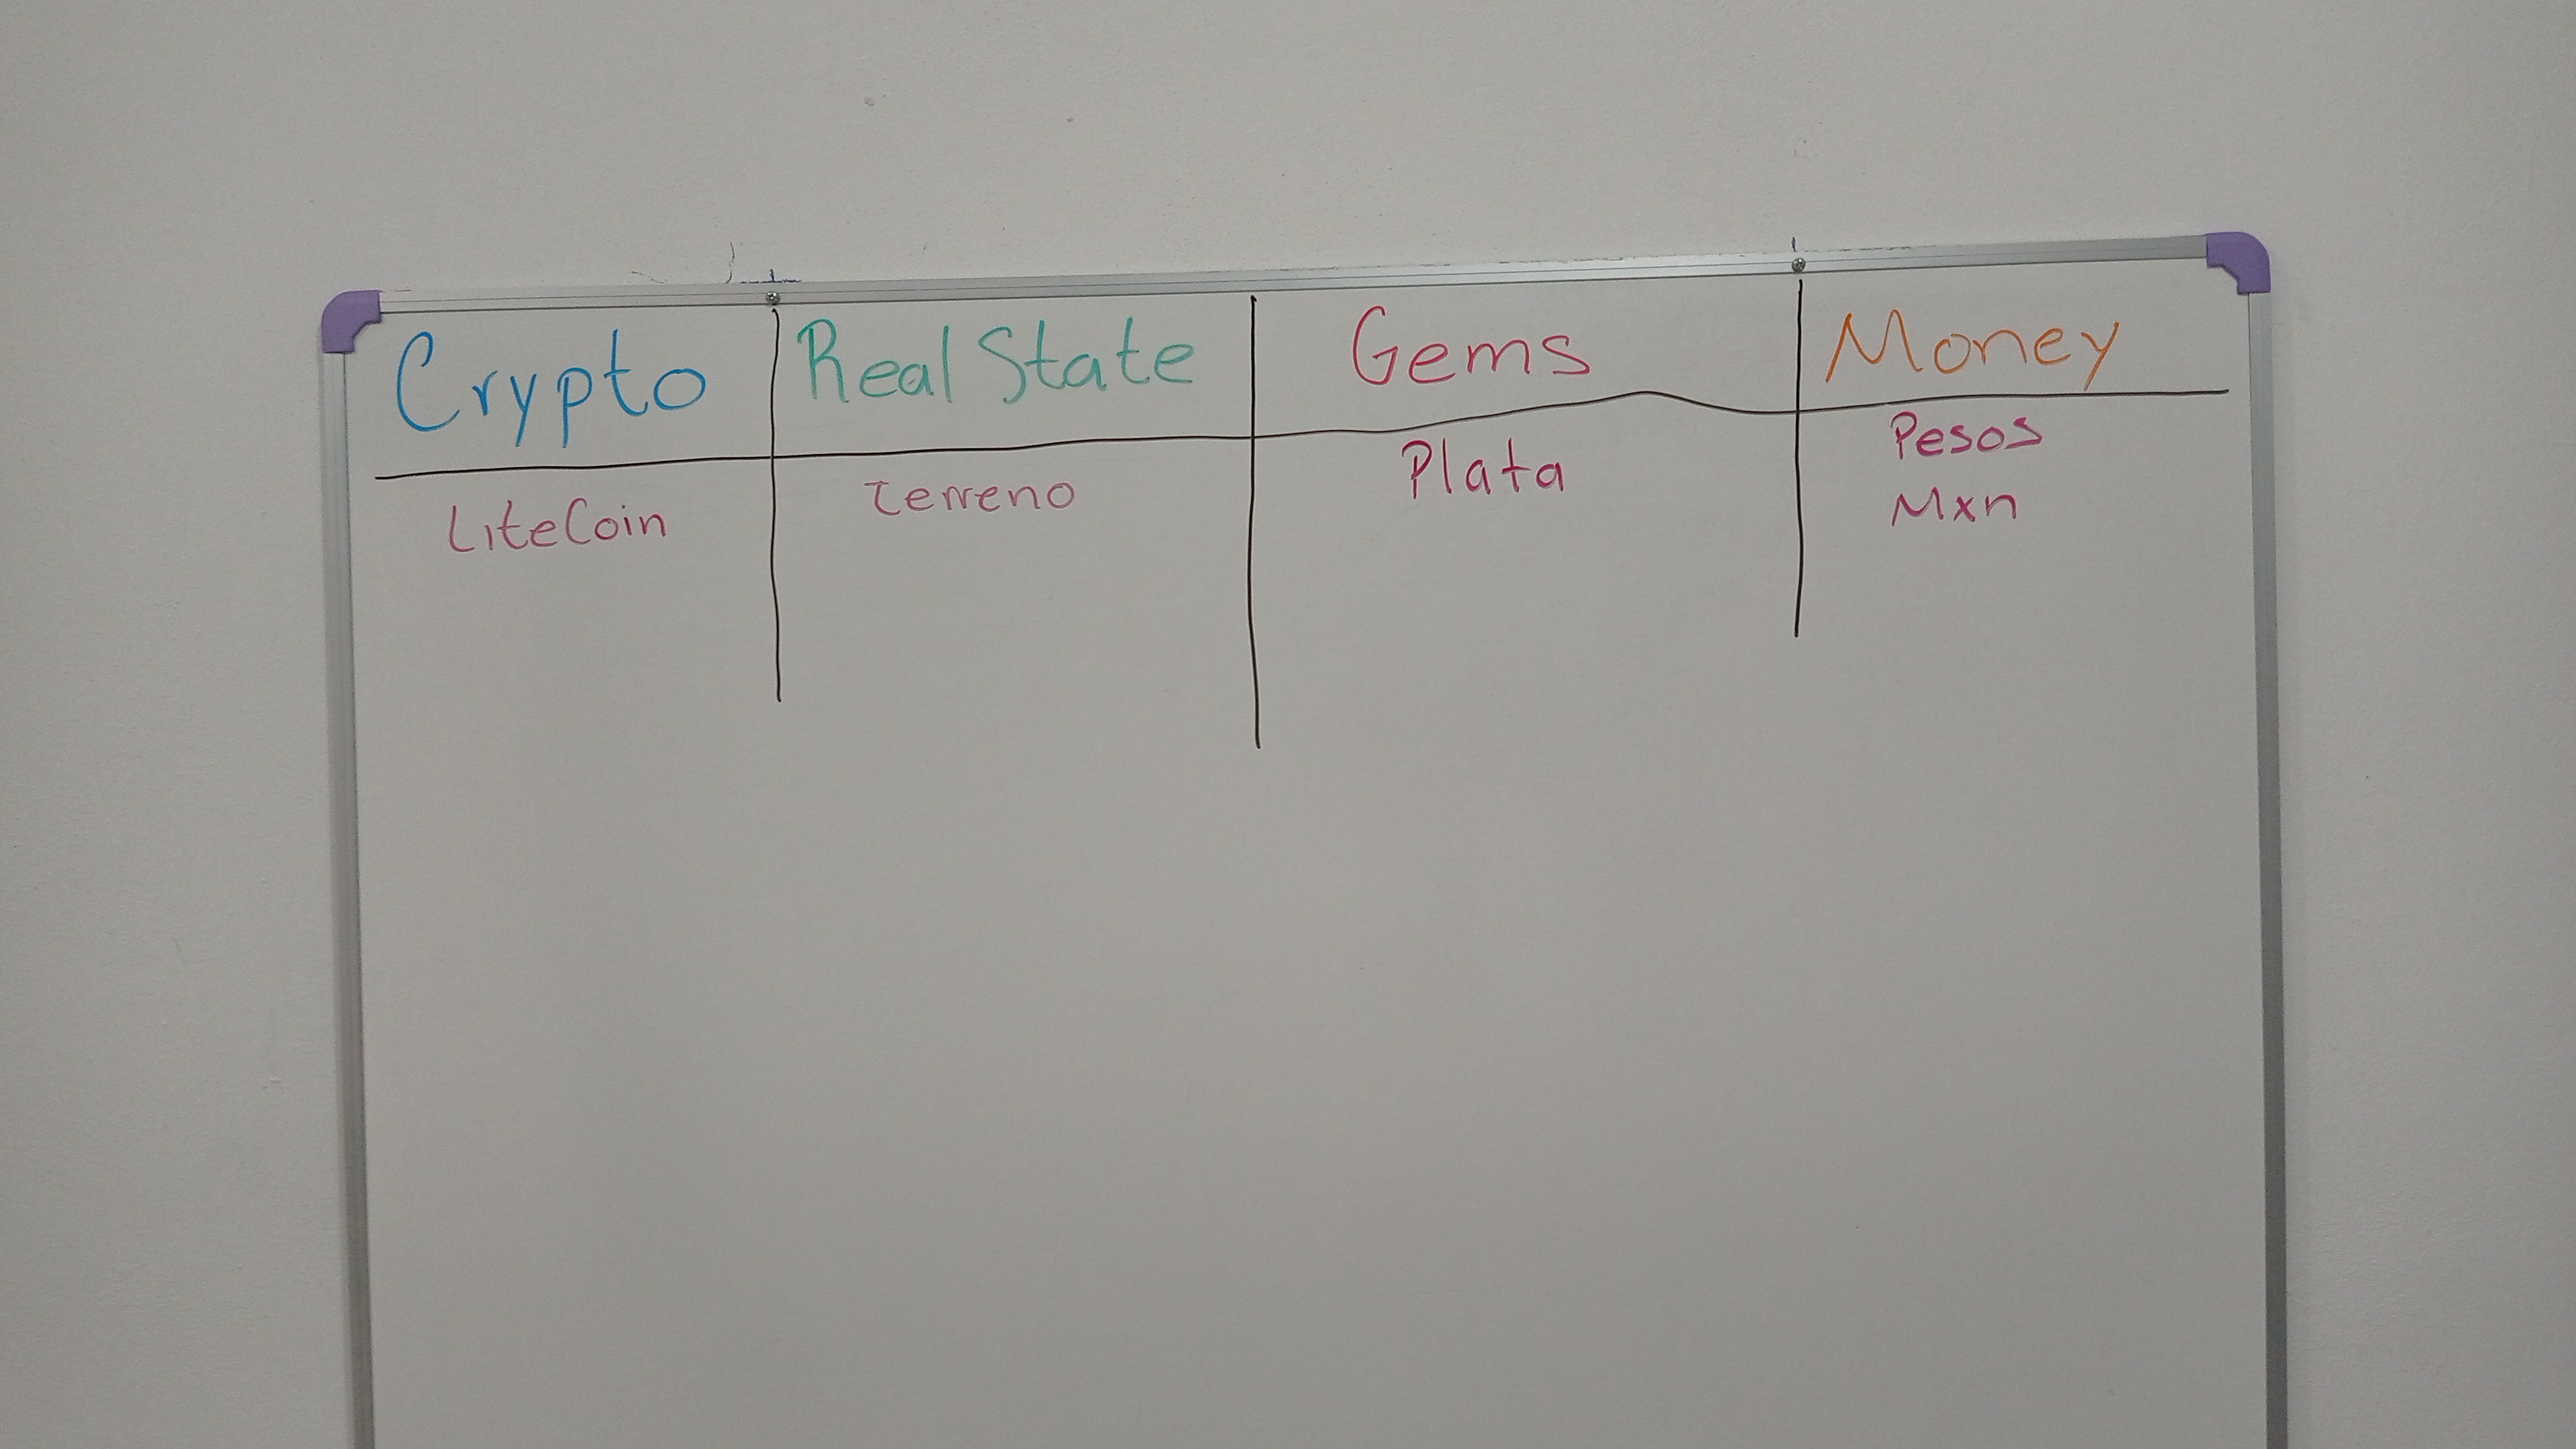 Crypto Real State Gems Money
LiteCoin Terreno Plata Pesos
Mxn